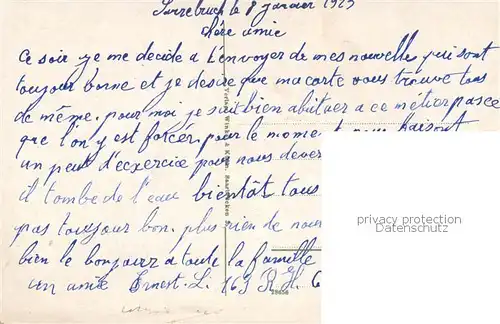 le 8 janvier 1923
chère amie
Ce soir je me décide a t'envoyer de mes nouvelle qui sont
toujour bonne et je desire que ma carte vous trouve tous
de même. pour moi je suit bien abituer a ce métier pasce
que l'on y est forcér. pour le mome
un peut d'excercice pour nous
il tombe de l'eau bientôt tous
pas toujour bon. plus rien de nouv
bien le bonjour a toute la famille
un amie Ernest. L. 163 R.
28656
privacy protection